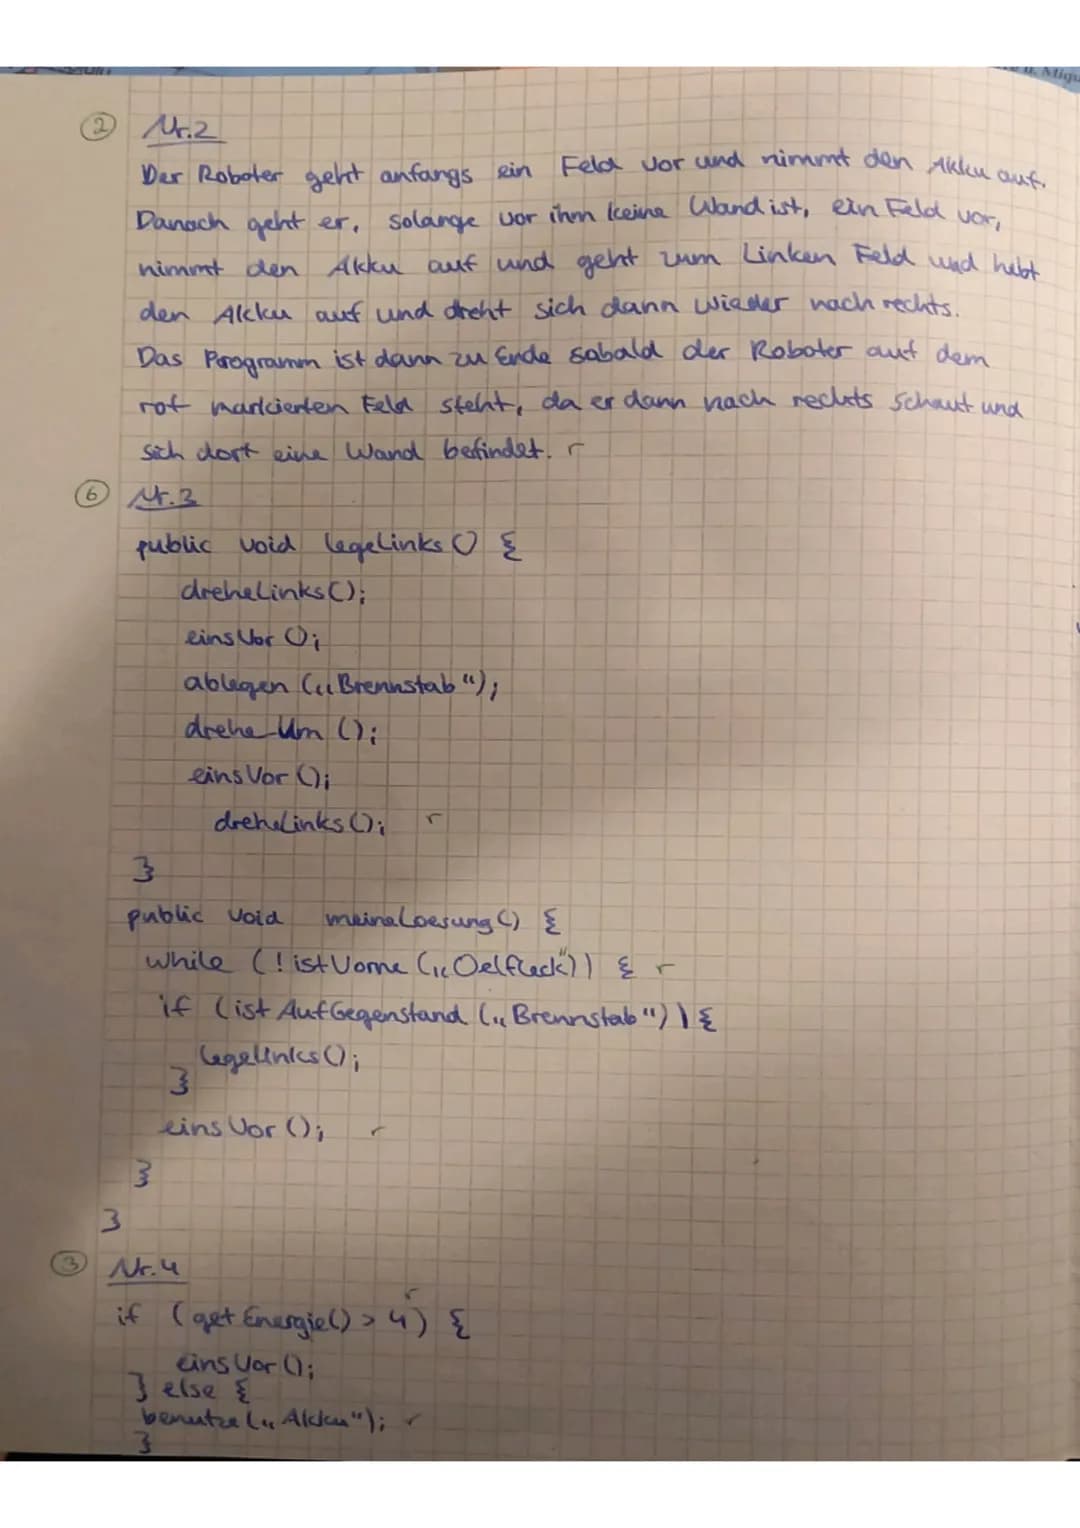 ② Nr.2
Der Roboter geht anfangs ein Feld vor und nimmt den Akku auf.
Danach geht er, solange vor ihm keine Wand ist, ein Feld vor,
nimmt den Akku auf und geht zum Linken Feld und hebt
den Akku auf und dreht sich dann wieder nach rechts.
Das Programm ist dann zu Ende sobald der Roboter auf dem
rot markierten Feld steht, da er dann nach rechts schaut und
sich dort eine Wand befindet. r
⑥ Nr.3
public void legeLinks () {
dreheLinks();
einsVor ();
ablegen („Brennstab“);
drehe Um ();
einsVor ();
dreheLinks(); r
}
public void meineLoesung () {
while (!istVorne („Oelfleck“)) { r
if (istAufGegenstand („Brennstab“)) {
legeLinks();
}
einsVor (); r
}
}
③ Nr.4
if (getEnergie() > 4) { r
einsVor ();
} else {
benutze („Akku“); r
}